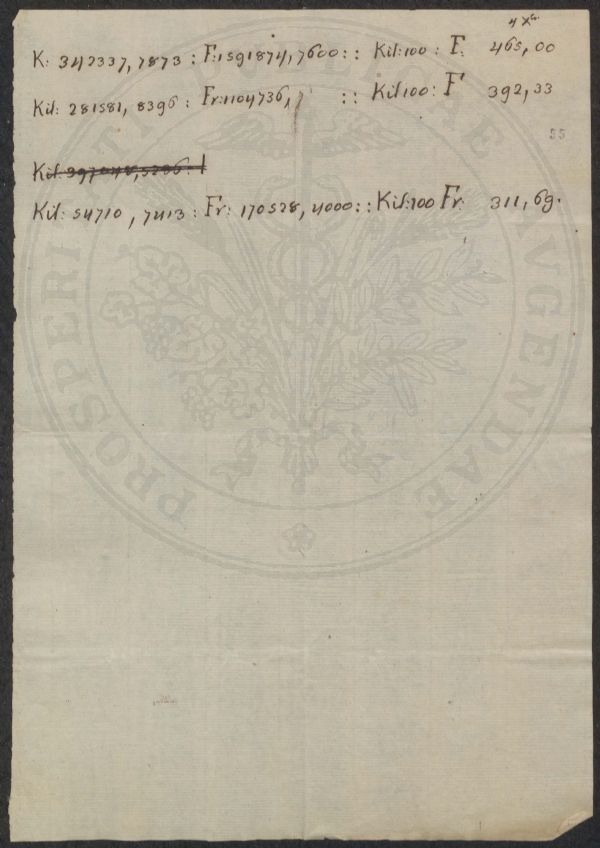 4 X
K: 342337, 7873 : F: 1591874, 7600 :: Kil: 100 : F. 465, 00
Kil: 281581, 8396 : Fr: 1104736, 7 :: Kil 100 : F 392, 33
55
Kil: 5286: 1
Kil: 54710, 7413 : Fr: 170528, 4000 :: Kil: 100 Fr. 311, 69.
PROSPERITATI PUBLICAE AVGENDAE